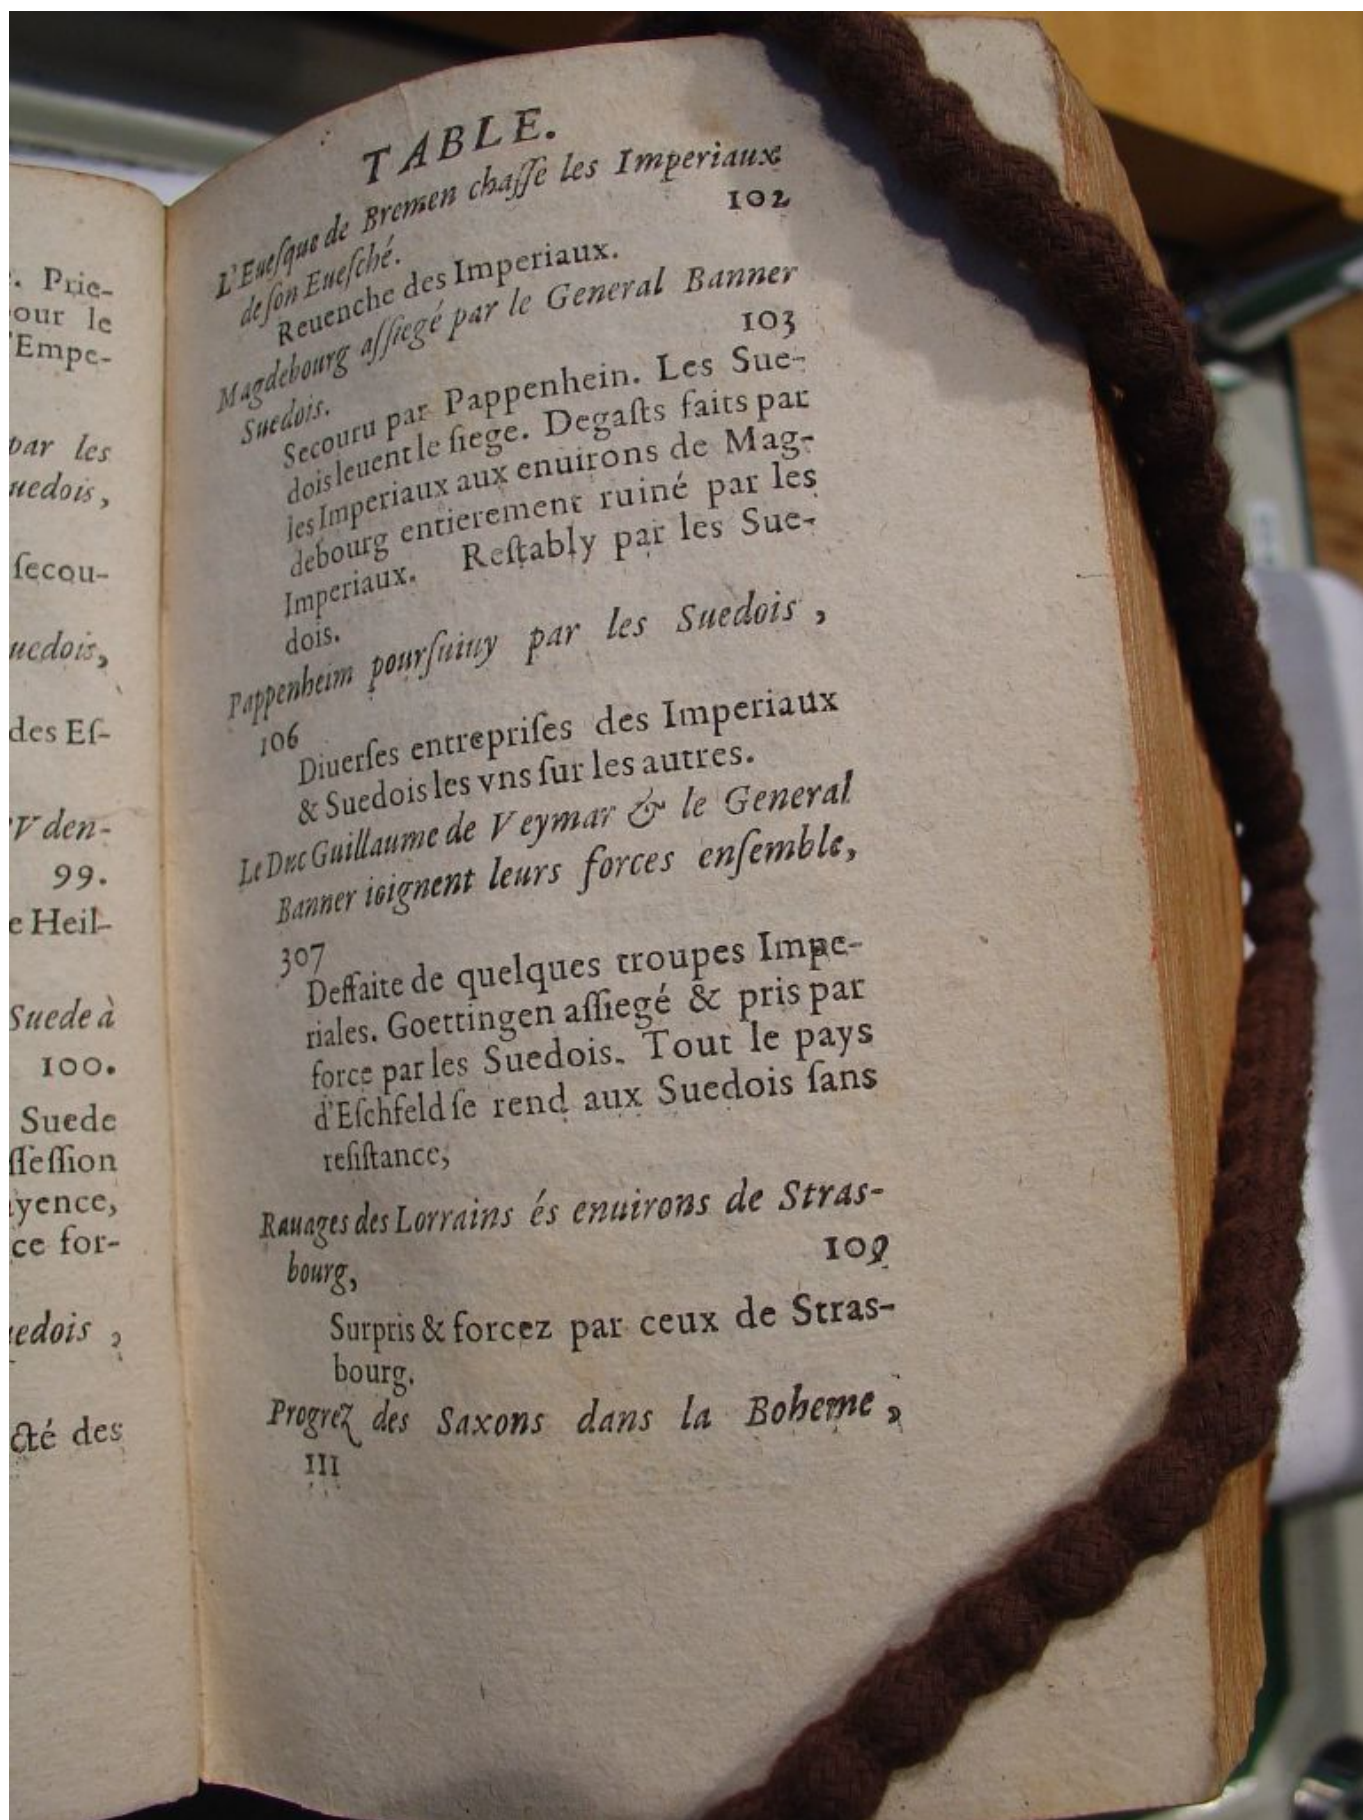 . Prie-
our le
'Empe-
par les
uedois,
ſecou-
uedois,
des Eſ-
Vden-
99.
e Heil-
Suede à
100.
Suede
ſſeſſion
ayence,
ce for-
uedois ,
cté des
TABLE.
L'Eueſque de Bremen chaſſe les Imperiaux
de ſon Eueſché. 102
Reuenche des Imperiaux.
Magdebourg aſſiegé par le General Banner
Suedois. 103
Secouru par Pappenhein. Les Sue-
dois leuent le ſiege. Degaſts faits par
les Imperiaux aux enuirons de Mag-
debourg entierement ruiné par les
Imperiaux. Reſtably par les Sue-
dois.
Pappenheim pourſuiuy par les Suedois ,
106
Diuerſes entrepriſes des Imperiaux
& Suedois les vns ſur les autres.
Le Duc Guillaume de Veymar & le General
Banner ioignent leurs forces enſemble,
307
Deffaite de quelques troupes Impe-
riales. Goettingen aſſiegé & pris par
force par les Suedois. Tout le pays
d'Eſchfeld ſe rend aux Suedois ſans
reſiſtance,
Rauages des Lorrains és enuirons de Stras-
bourg, 109
Surpris & forcez par ceux de Stras-
bourg.
Progrez des Saxons dans la Boheme ,
111